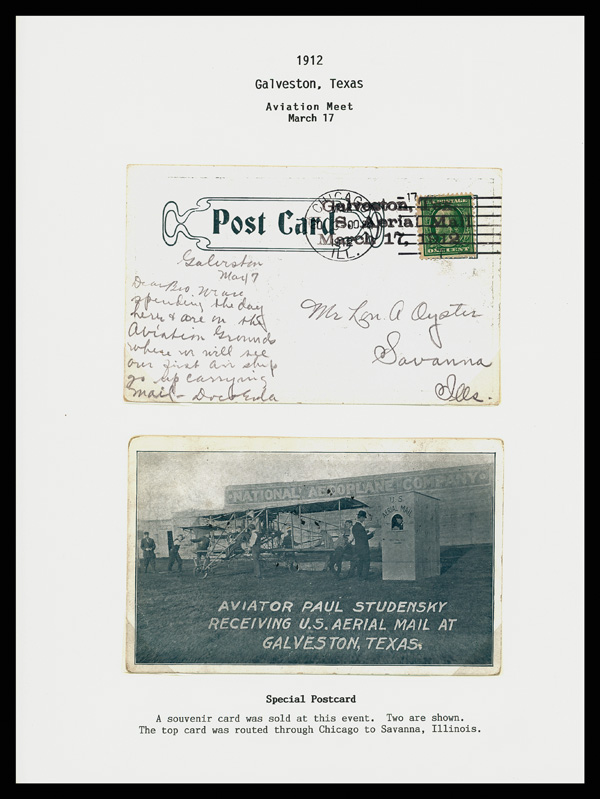 1912
Galveston, Texas
Aviation Meet
March 17
Post Card
CHICAGO
ILL.
17
Galveston, Tex
U.S. Aerial Mail
March 17, 1912
Galveston
Mar 17
Dear Bro, We are
spending the day
here & are on the
Aviation Grounds
where we will see
our first air ship
go up carrying
mail - Doc & Eda
Mr Lon. A Oyster
Savanna
Ills.
NATIONAL AEROPLANE COMPANY
U.S.
AERIAL MAIL
AVIATOR PAUL STUDENSKY
RECEIVING U.S. AERIAL MAIL AT
GALVESTON, TEXAS.
Special Postcard
A souvenir card was sold at this event.  Two are shown.
The top card was routed through Chicago to Savanna, Illinois.